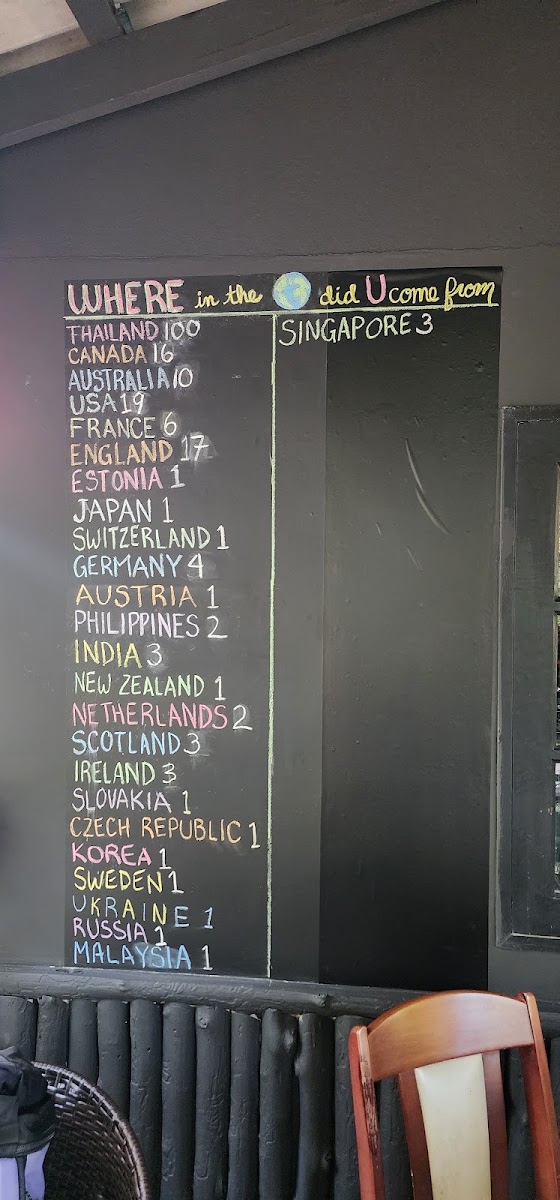 WHERE in the did U come from
THAILAND 100
CANADA 16
AUSTRALIA 10
USA 19
FRANCE 6
ENGLAND 17
ESTONIA 1
JAPAN 1
SWITZERLAND 1
GERMANY 4
AUSTRIA 1
PHILIPPINES 2
INDIA 3
NEW ZEALAND 1
NETHERLANDS 2
SCOTLAND 3
IRELAND 3
SLOVAKIA 1
CZECH REPUBLIC 1
KOREA 1
SWEDEN 1
UKRAINE 1
RUSSIA 1
MALAYSIA 1
SINGAPORE 3